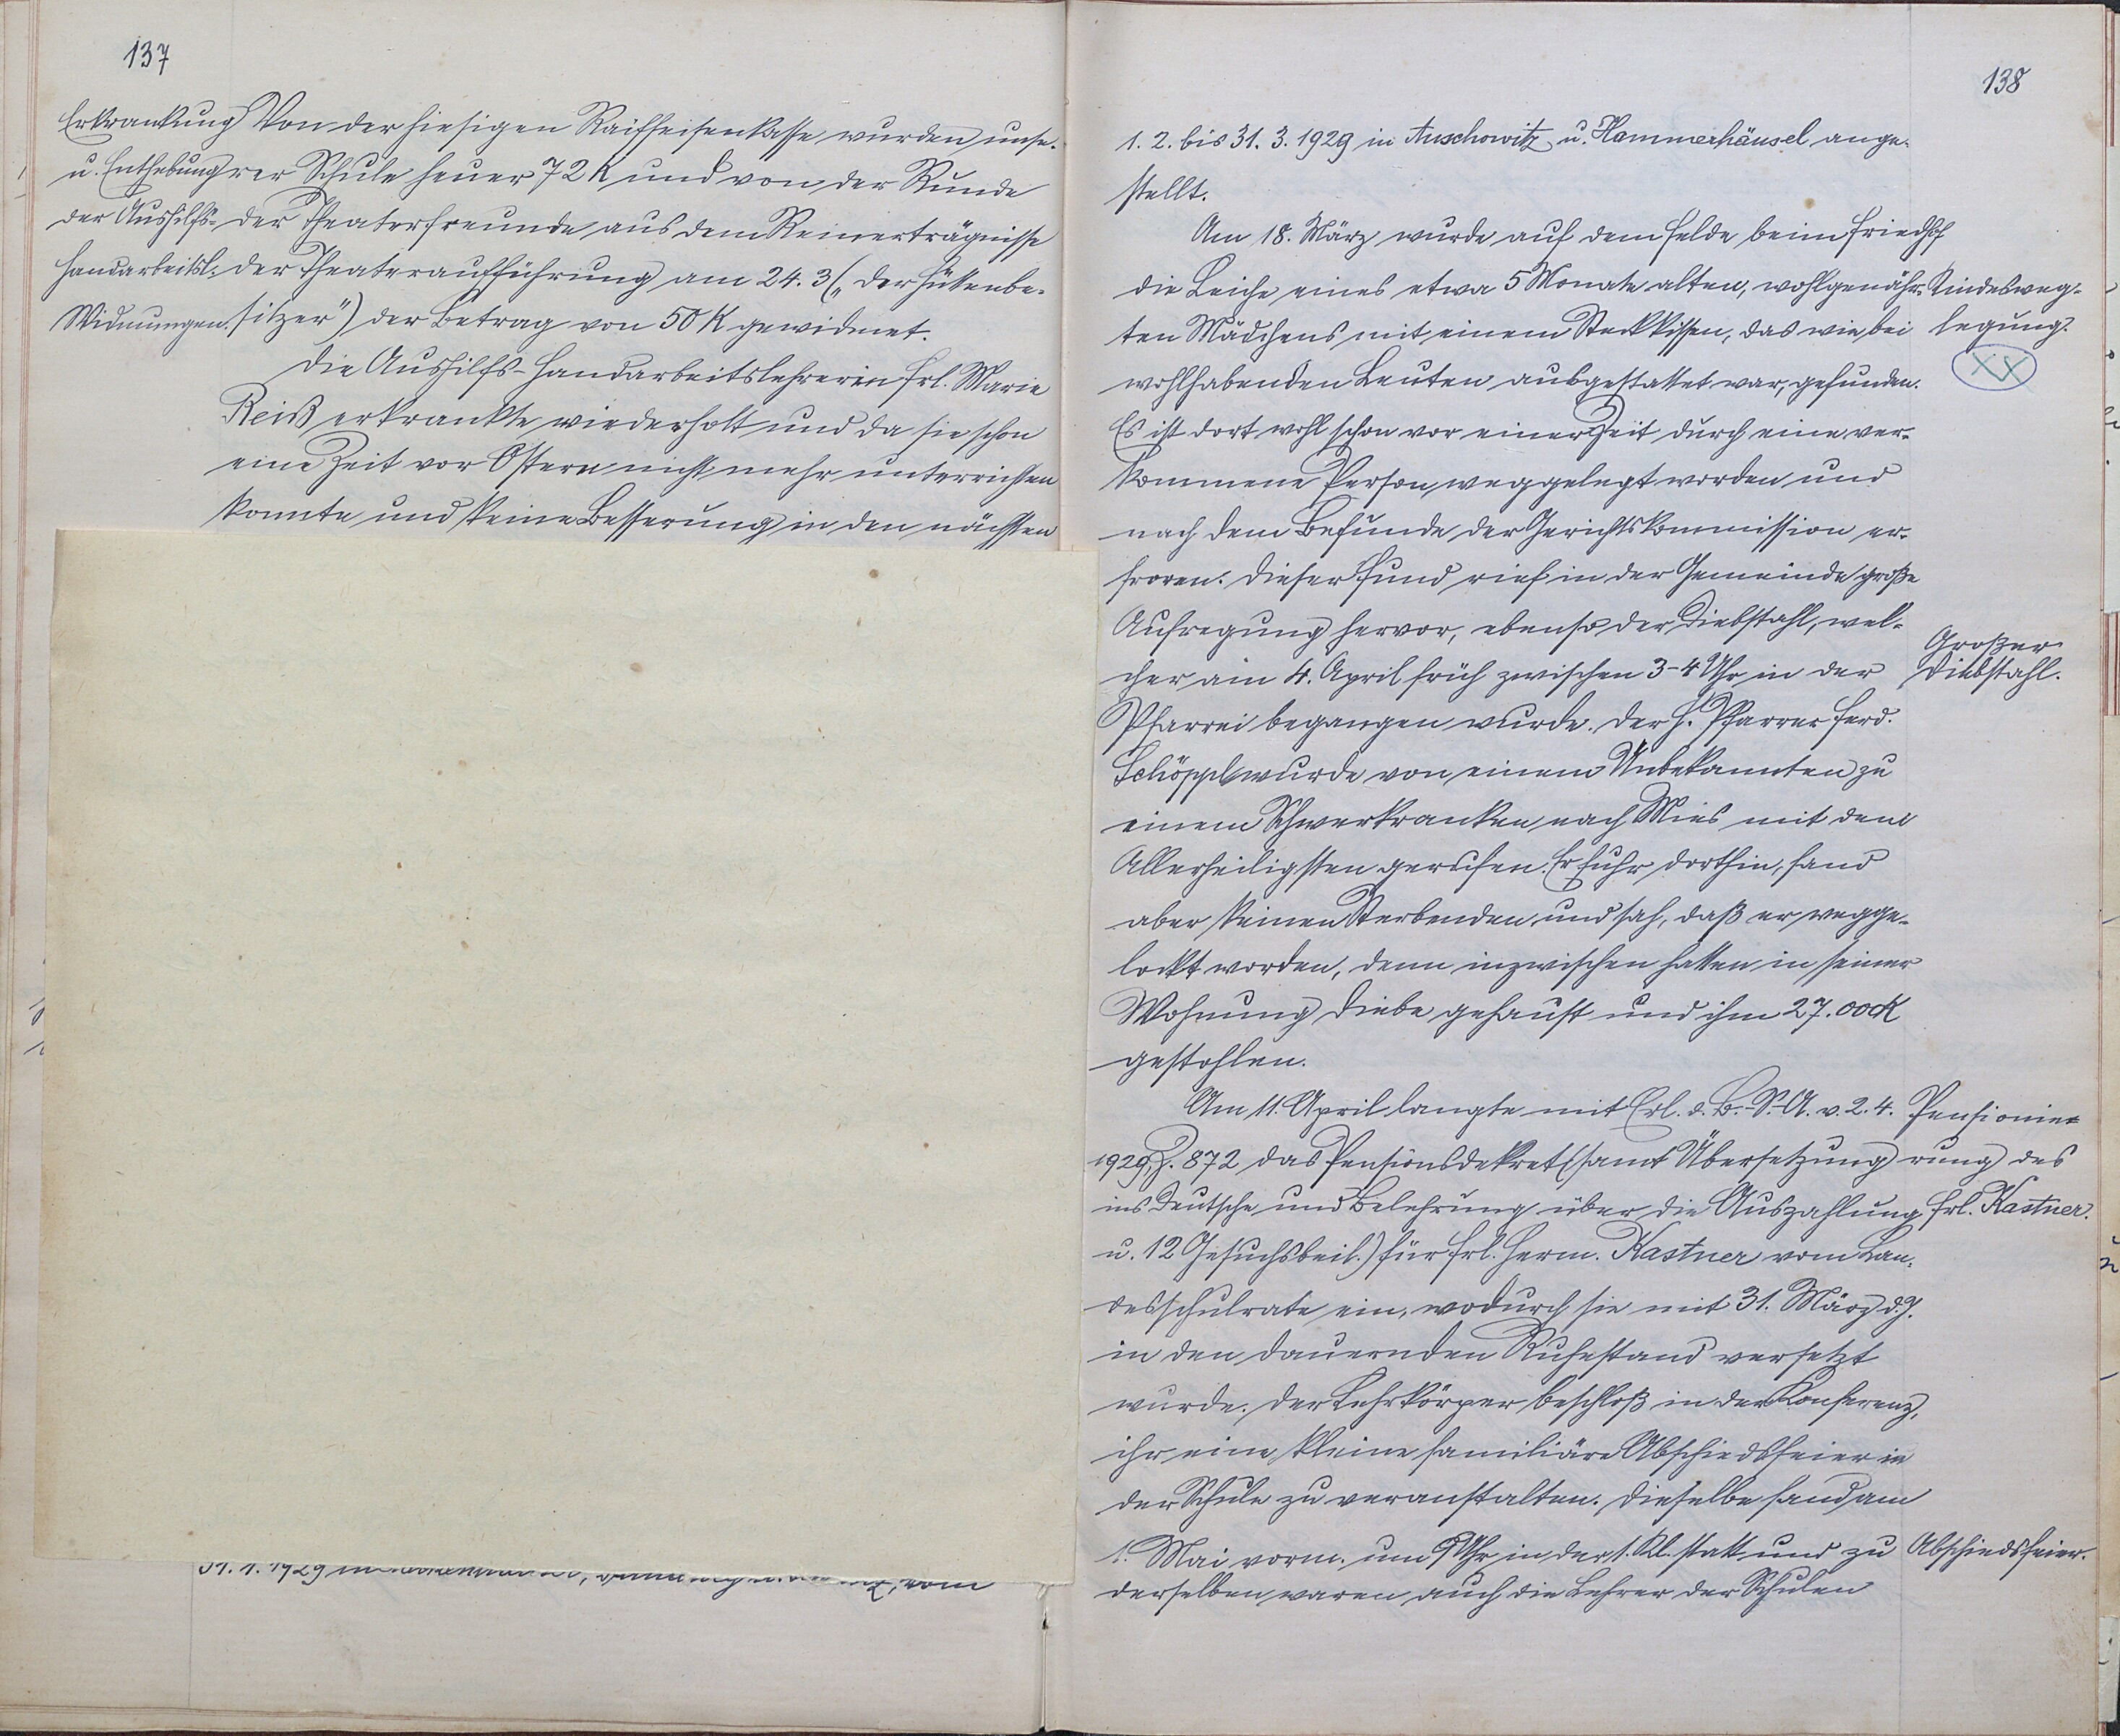 137
Erkrankung
u. Enthebung
der Aushilfs-
handarbeitsl.
Widmungen.
Von der hiesigen Raiffeisenkasse wurden unse-
rer Schule heuer 72 K und von der Runde
der Theaterfreunde aus dem Reinerträgnisse
der Theateraufführung am 24. 3 („Der Hüttenbe-
sitzer") der Betrag von 50 K gewidmet.
Die Aushilfs-Handarbeitslehrerin Frl. Marie
Reiß erkrankte wiederholt und da sie schon
eine Zeit vor Ostern nicht mehr unterrichten
konnte und keine Besserung in den nächsten
31. 1. 1929 in vom
138
1. 2. bis 31. 3. 1929 in Auschowitz u. Hammerhäusel ange-
stellt.
Am 18. März wurde auf dem Felde beim Friedhof
die Leiche eines etwa 5 Monate alten, wohlgenähr-
ten Mädchens mit einem Steckkissen, das wie bei
wohlhabenden Leuten ausgestattet war, gefunden.
Es ist dort wohl schon vor einer Zeit durch eine ver-
kommene Person weggelegt worden und
nach dem Befunde der Gerichtskommission er-
froren. Dieser Fund rief in der Gemeinde große
Aufregung hervor, ebenso der Diebstahl, wel-
cher am 4. April früh zwischen 3-4 Uhr in der
Pfarrei begangen wurde. Der H. Pfarrer Ferd.
Schöppl wurde von einem Unbekannten zu
einem Schwerkranken nach Mies mit dem
Allerheiligsten gerufen. Er fuhr dorthin, fand
aber keinen Sterbenden und sah, daß er wegge-
lockt worden, denn inzwischen hatten in seiner
Wohnung Diebe gehaust und ihm 27.000 K
gestohlen.
Am 11. April langte mit Erl. d. B.-S.-A. v. 2. 4.
1929, Z. 872 das Pensionsdekret (samt Übersetzung
ins Deutsche und Belehrung über die Auszahlung
u. 12 Gesuchsbeil.) für Frl. Herm. Kastner vom Lan-
desschulrate ein, wodurch sie mit 31. März d. J.
in den dauernden Ruhestand versetzt
wurde. Der Lehrkörper beschloß in der Konferenz,
ihr eine kleine familiäre Abschiedsfeier in
der Schule zu veranstalten. Dieselbe fand am
1. Mai vorm. um 9 Uhr in der 1. Kl. statt und zu
derselben waren auch die Lehrer der Schulen
Kindesweg-
legung.
XX
Großer
Diebstahl.
Pensionie-
rung des
Frl. Kastner.
Abschiedsfeier.